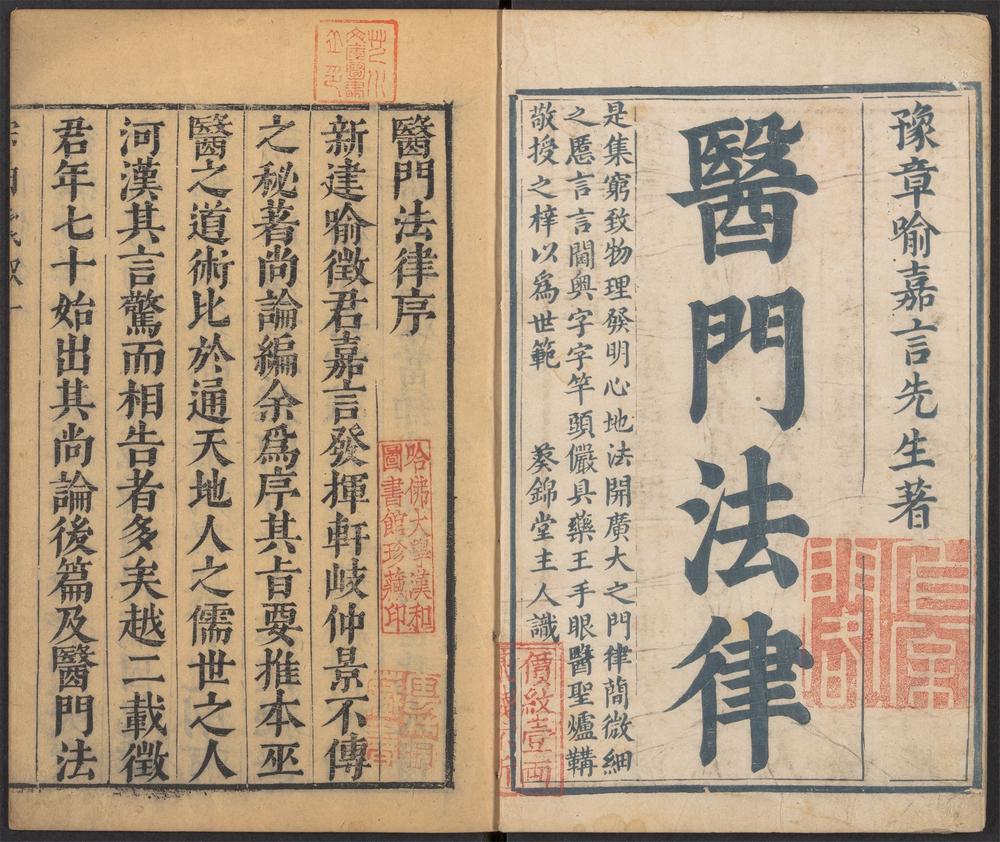 豫章喻嘉言先生著
醫門法律
是集窮致物理發明心地法開廣大之門律蕳微細
之慝言言閫奥字字竿頭儼具藥王手眼醫聖爐鞲
敬授之梓以為世範 葵錦堂主人識
價紋壹兩
醫門法律序
哈佛大學漢和
圖書館珍藏印
新建喻徵君嘉言發揮軒岐仲景不傳
之秘著尚論編余為序其㫖要推本巫
醫之道術比於通天地人之儒世之人
河漢其言驚而相告者多矣越二載徵
君年七十始出其尚論後篇及醫門法